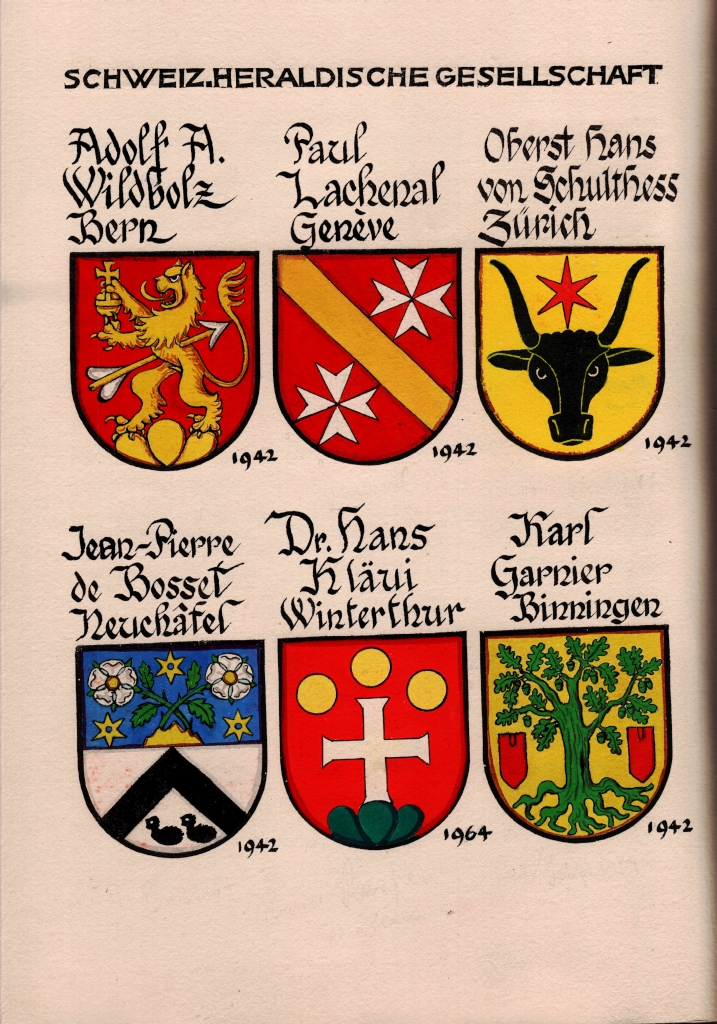 SCHWEIZ.HERALDISCHE GESELLSCHAFT
Adolf A.
Wildbolz
Bern
1942
Paul
Lachenal
Genève
1942
Oberst Hans
von Schulthess
Zürich
1942
Jean-Pierre
de Bosset
Neuchâtel
1942
Dr. Hans
Kläui
Winterthur
1964
Karl
Garnier
Binningen
1942